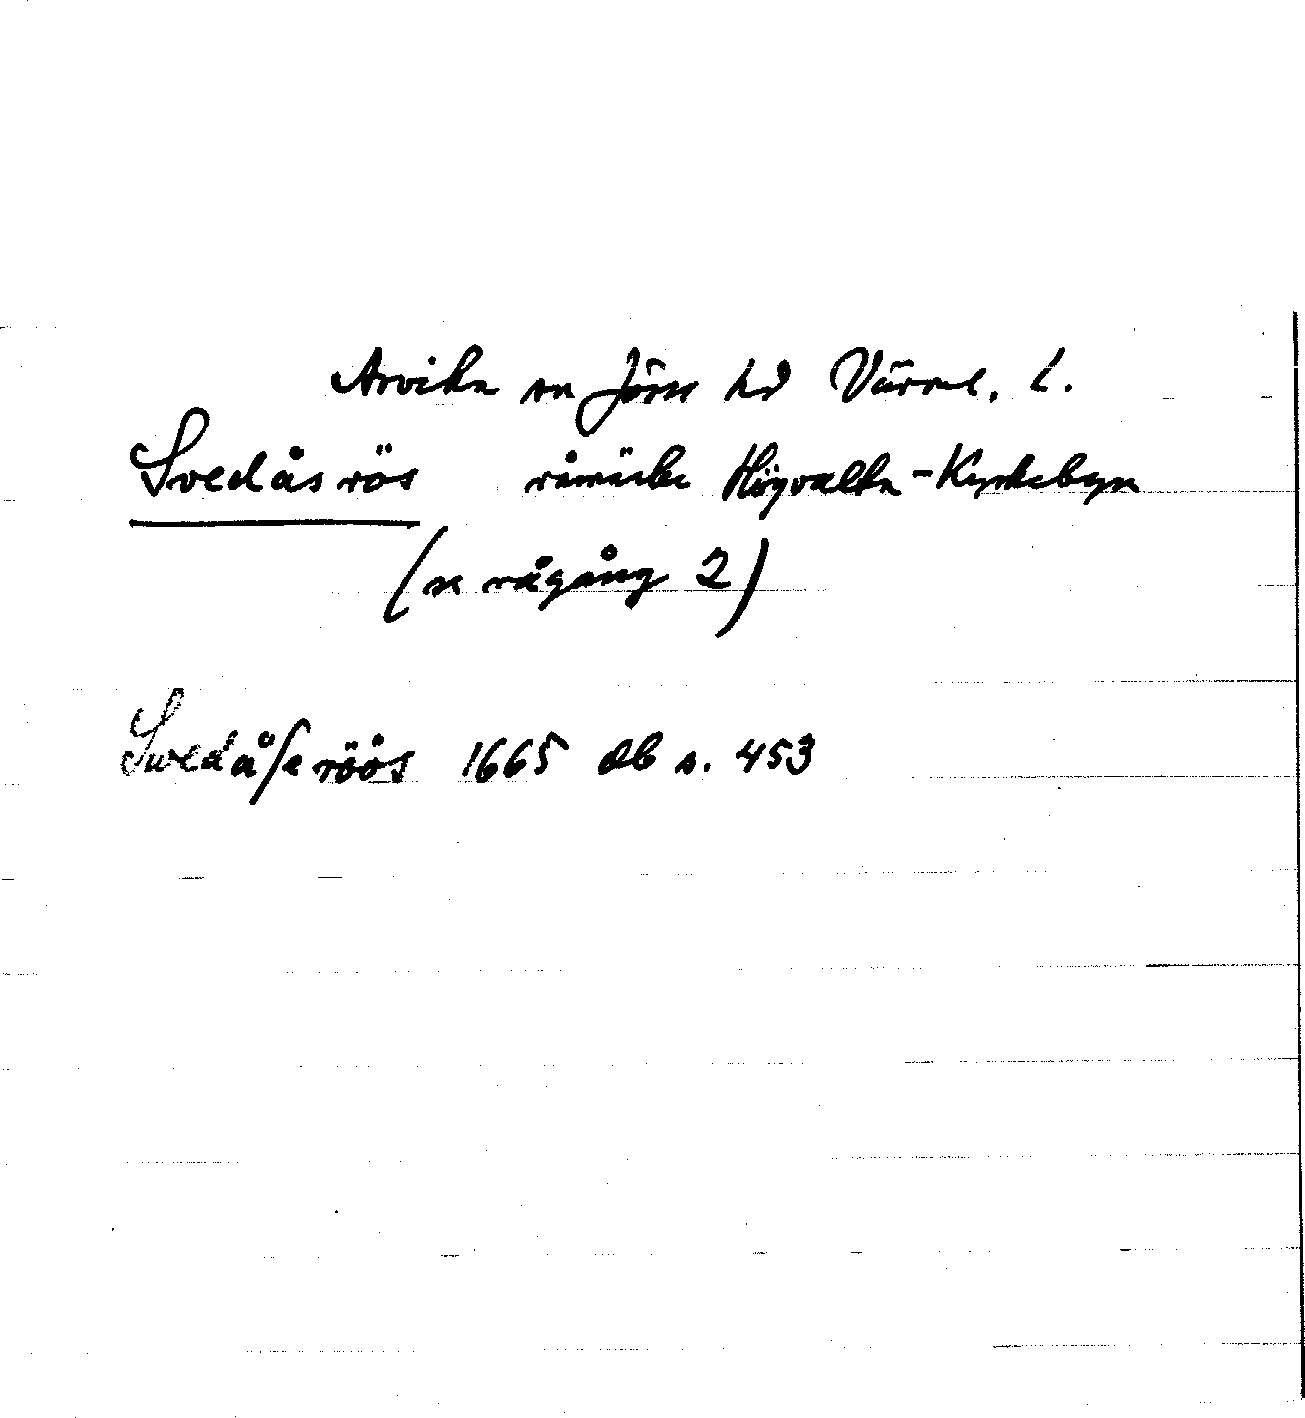 Arvika sn Jösse hd Värml. l.
Svedåsrös råmärke Högvalta-Kyrkebyn
(se rågång 2)
Swedåſe röös 1665 db s. 453